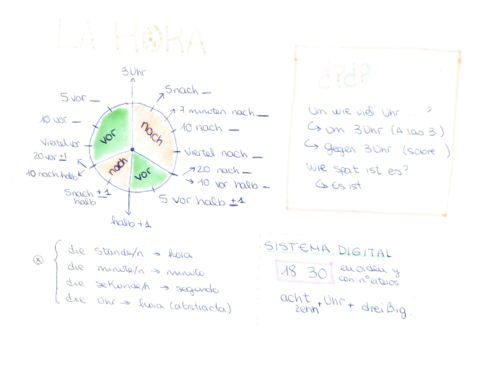 LA HORA
3 Uhr
5 vor __
5 nach __
10 vor __
7 minuten nach __
10 nach __
viertel vor __
viertel nach __
20 vor +1
20 nach __
10 nach halb
10 vor halb __
5 nach +1
halb
5 vor halb +1
halb +1
vor
nach
nach
vor
Um wie viel Uhr ?
↳ um 3 Uhr (A las 3)
↳ gegen 3 Uhr (sobre)
Wie spat ist es?
↳ Es ist
die Stunde/n → hora
die minute/n → minuto
die sekonde/n → segundo
die Uhr → hora (abstracta)
SISTEMA DIGITAL
18 30 en orden y
con nºs
acht + Uhr + dreißig
zehn